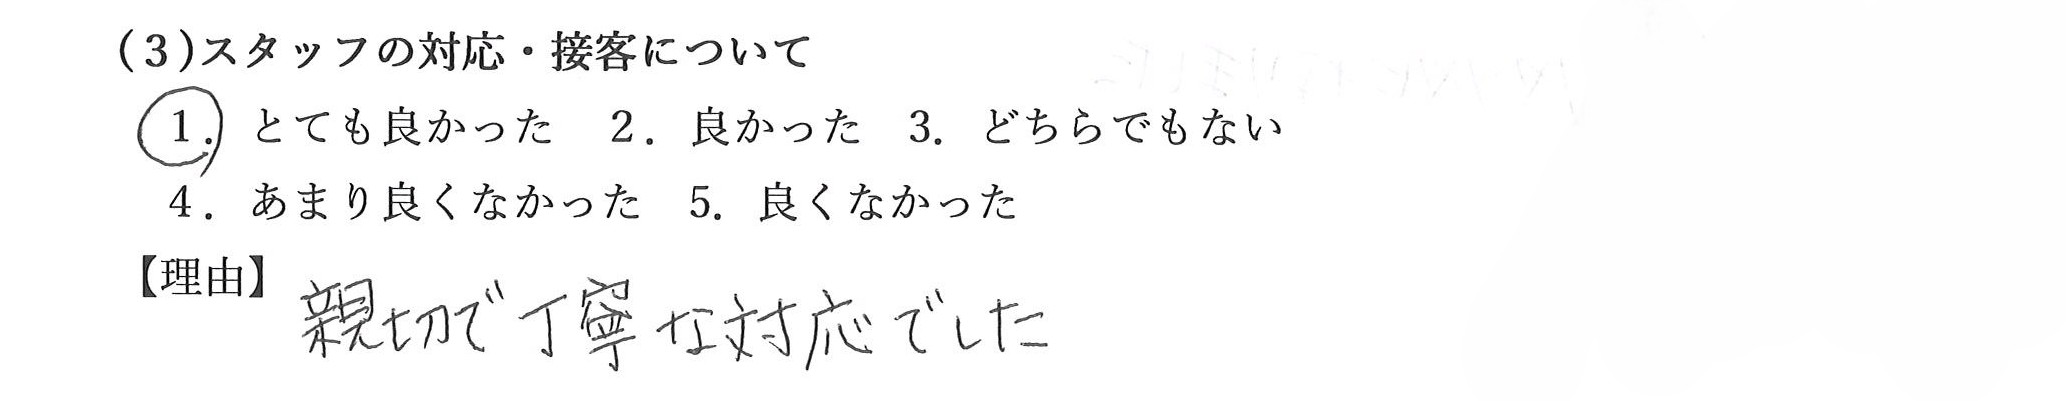 (3)スタッフの対応・接客について
1. とても良かった 2. 良かった 3. どちらでもない
4. あまり良くなかった 5. 良くなかった
【理由】
親切で丁寧な対応でした